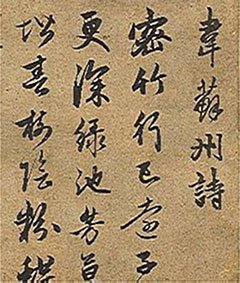 韋蘇州詩
密竹行已遠子
更深綠池芳草
堦春樹陰粉蝶